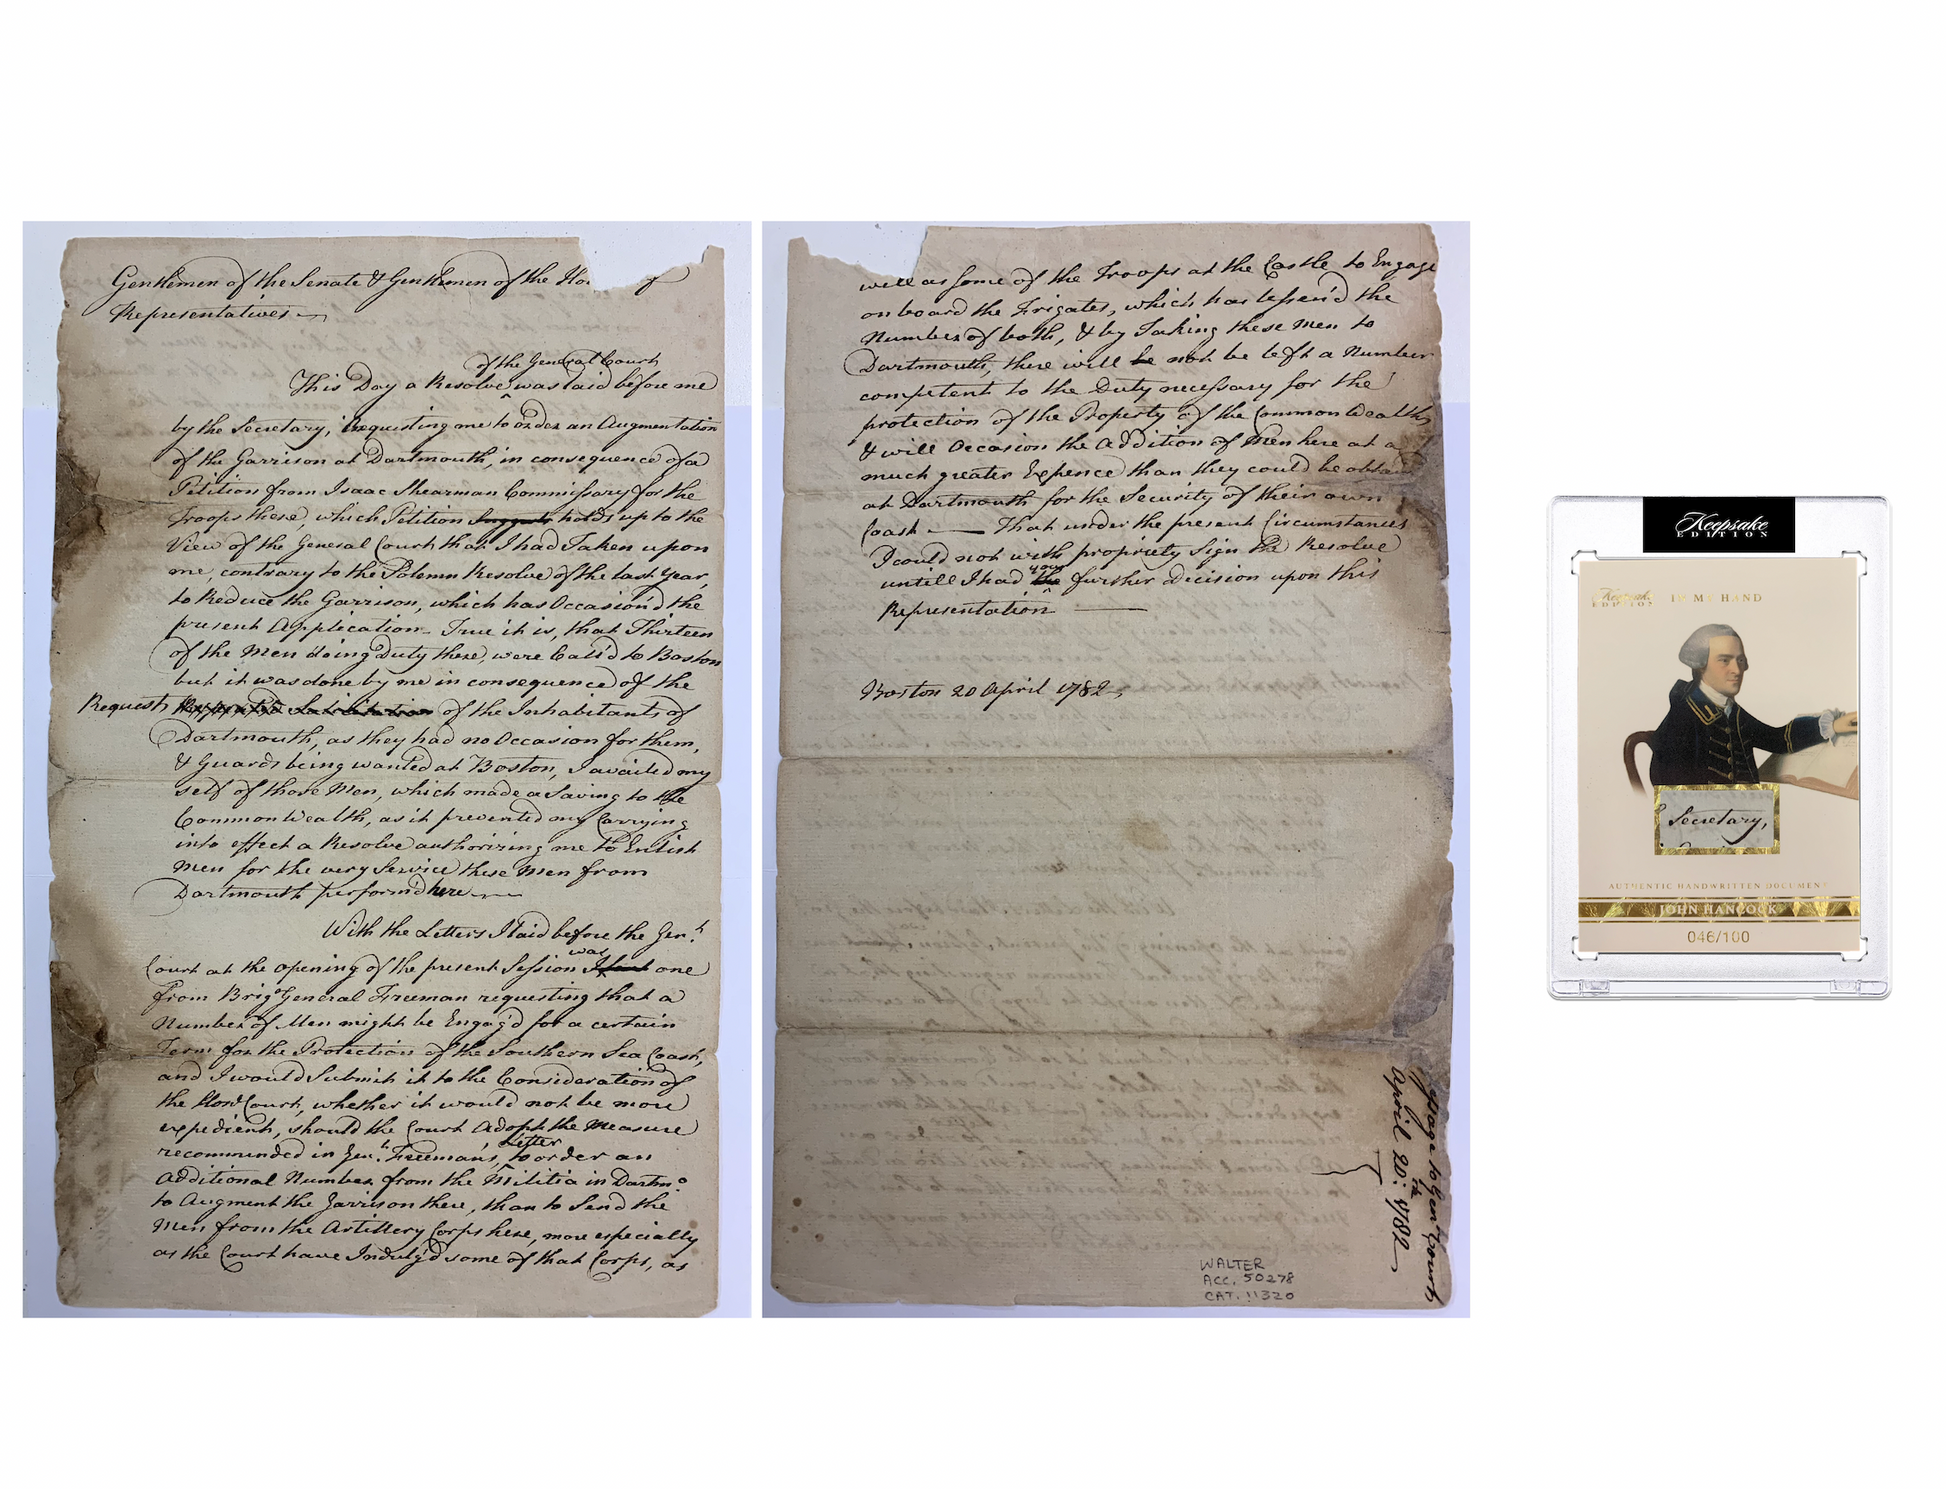 Gentlemen of the Senate & Gentlemen of the Ho of
Representatives
of the General Court
This Day a Resolve ^ was laid before me
by the Secretary, requesting me to order an Augmentation
of the Garrison at Dartmouth, in consequence of a
Petition from Isaac Shearman Commissary for the
Troops there, which Petition holds up to the
View of the General Court that I had Taken upon
me, contrary to the Solemn Resolve of the last Year,
to Reduce the Garrison, which has Occasion'd the
present Application - True it is, that Thirteen
of the Men doing Duty there, were Call'd to Boston
but it was done by me in consequence of the
Request of the Inhabitants of
Dartmouth, as they had no Occasion for them,
& Guards being wanted at Boston, I availed my
self of those Men, which made a Saving to the
Common Wealth, as it prevented my Carrying
into effect a Resolve authorizing me to Enlist
Men for the very Service these Men from
Dartmouth perform'd here
With the Letters I laid before the Gen.l
was
Court at the opening of the present Session one
from Brigr General Freeman requesting that a
Number of Men might be Engag'd for a certain
Term for the Protection of the Southern Sea Coast,
and I would Submit it to the Consideration of
the Honl Court, whether it would not be more
expedient, should the Court Adopt the Measure
Letter
recommended in Gen.l Freeman's ^, to order an
additional Number from the Militia in Dartmo
to Augment the Garrison there, than to Send the
Men from the Artillery Corps here, more especially
as the Court have Indulg'd some of that Corps, as
well as some of the Troops at the Castle to Engage
on board the Frigates, which has lessen'd the
Number of both, & by Taking these Men to
Dartmouth, there will be not be left a Number
competent to the Duty necessary for the
protection of the Property of the Common Wealth
& will Occasion the addition of Men here at a
much greater Expence than they could be obtain
at Dartmouth for the Security of their own
Coast — That under the present Circumstances
I could not with propriety Sign the Resolve
your
untill I had the ^ further decision upon this
Representation
Boston 20 April 1782
WALTER
ACC. 50278
CAT. 11320
essage to Gen.l Court
April 20th: 1782
Keepsake
EDITION
Keepsake
EDITION
IN MY HAND
Secretary,
AUTHENTIC HANDWRITTEN DOCUMENT
JOHN HANCOCK
046/100